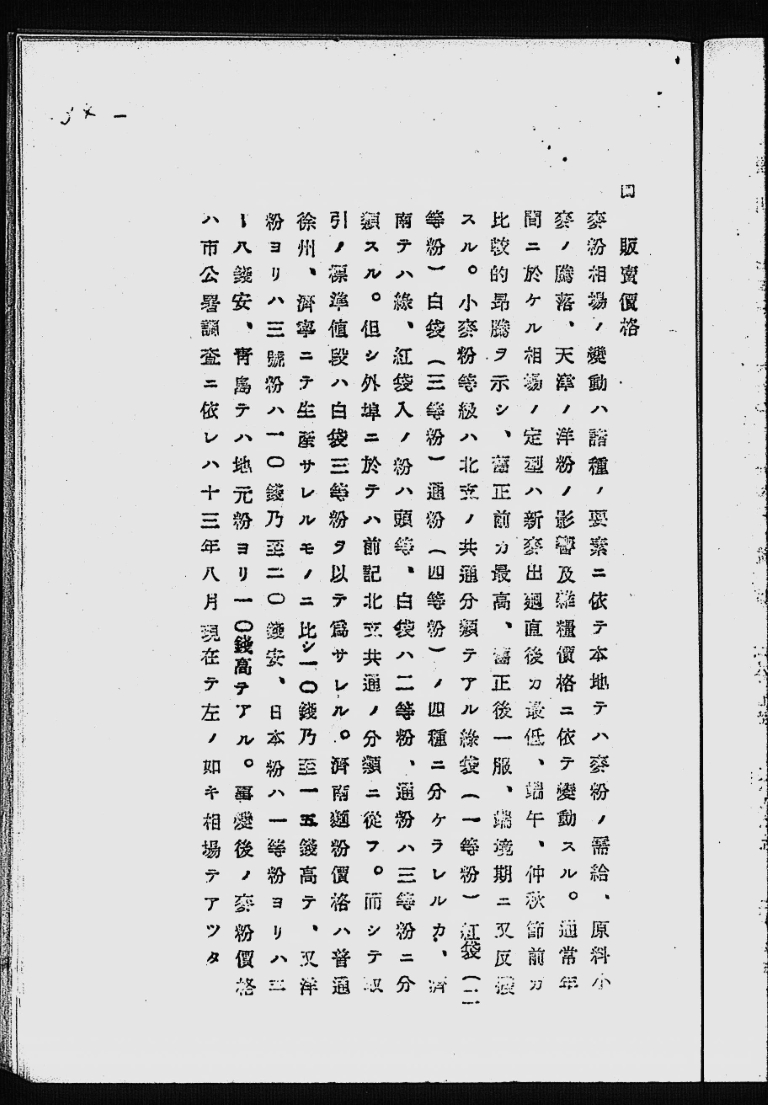 四 販賣價格
麥粉相場ノ變動ハ諸種ノ要素ニ依テ本地テハ麥粉ノ需給、原料小
麥ノ騰落、天津ノ洋粉ノ影響及雜糧價格ニ依テ變動スル。通常年
間ニ於ケル相場ノ定型ハ新麥出廻直後カ最低、端午、仲秋節前カ
比較的昻騰ヲ示シ、舊正前カ最高、舊正後一服、端境期ニ又反撥
スル。小麥粉等級ハ北支ノ共通分類テアル綠袋(一等粉)紅袋(二
等粉)白袋(三等粉)通粉(四等粉)ノ四種ニ分ケラレルカ、濟
南テハ綠、紅袋入ノ粉ハ頭等、白袋ハ二等粉、通粉ハ三等粉ニ分
類スル。但シ外埠ニ於テハ前記北支共通ノ分類ニ從フ。而シテ取
引ノ標準値段ハ白袋三等粉ヲ以テ爲サレル。濟南麵粉價格ハ普通
徐州、濟寧ニテ生產サレルモノニ比シ一〇錢乃至一五錢高テ、又洋
粉ヨリハ三號粉ハ一〇錢乃至二〇錢安、日本粉ハ一等粉ヨリハ三
ー八錢安、靑島テハ地元粉ヨリ一〇錢高テアル。事變後ノ麥粉價格
ハ市公署調査ニ依レハ十三年八月現在テ左ノ如キ相場テアツタ